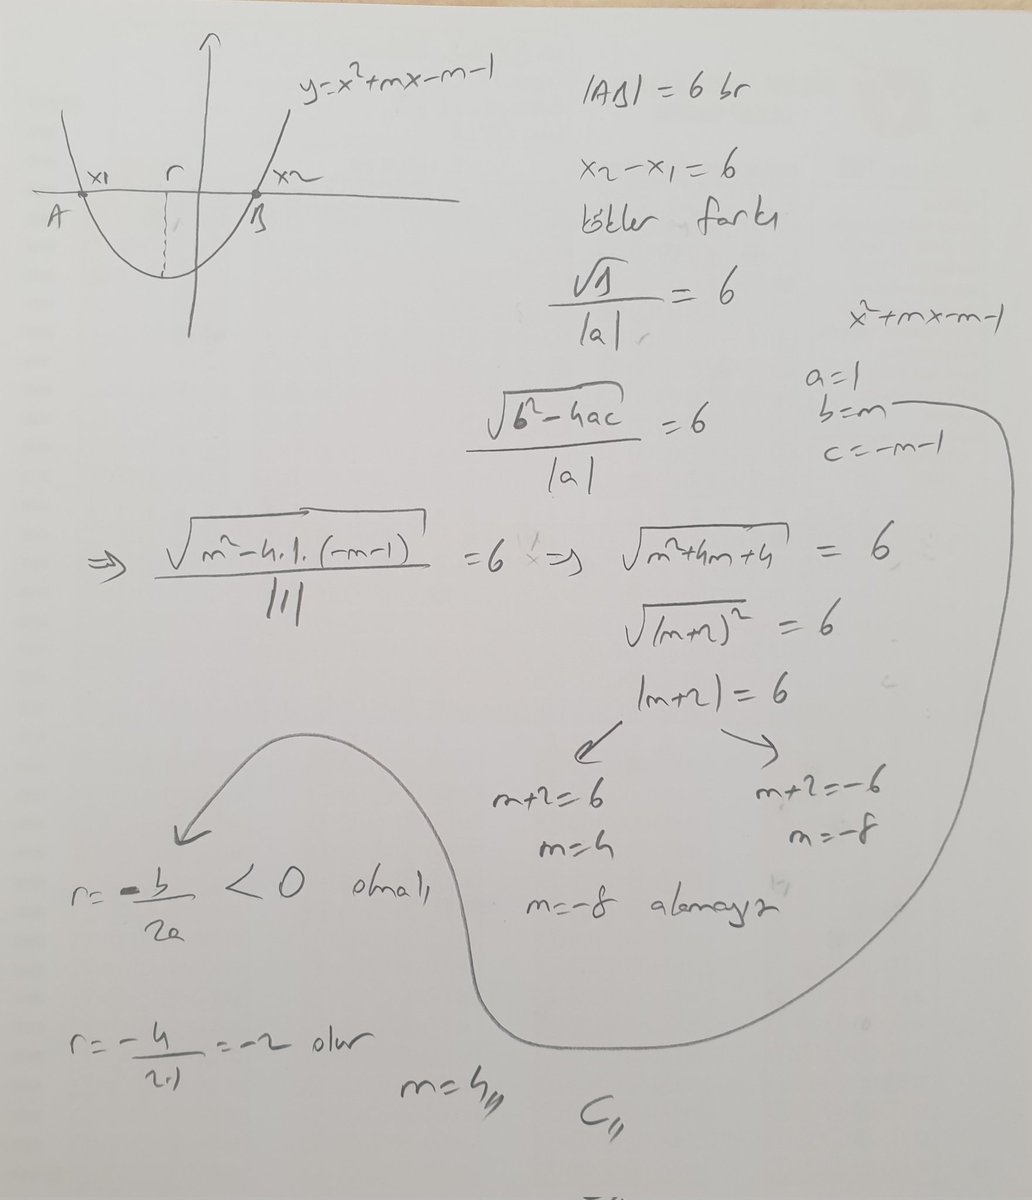 y=x²+mx-m-1
x1
r
x2
A
B
|AB| = 6 br
x2-x1=6
kökler farkı
√Δ/|a| = 6
x²+mx-m-1
a=1
b=m
c=-m-1
√(b²-4ac)/|a| = 6
⇒ √(m²-4.1.(-m-1))/|1| = 6 ⇒ √(m²+4m+4) = 6
√(m+2)² = 6
|m+2| = 6
m+2=6
m=4
m+2=-6
m=-8
m=-8 alamayız
r=-b/2a < 0 olmalı
r=-4/2.1 = -2 olur
m=4//
C//